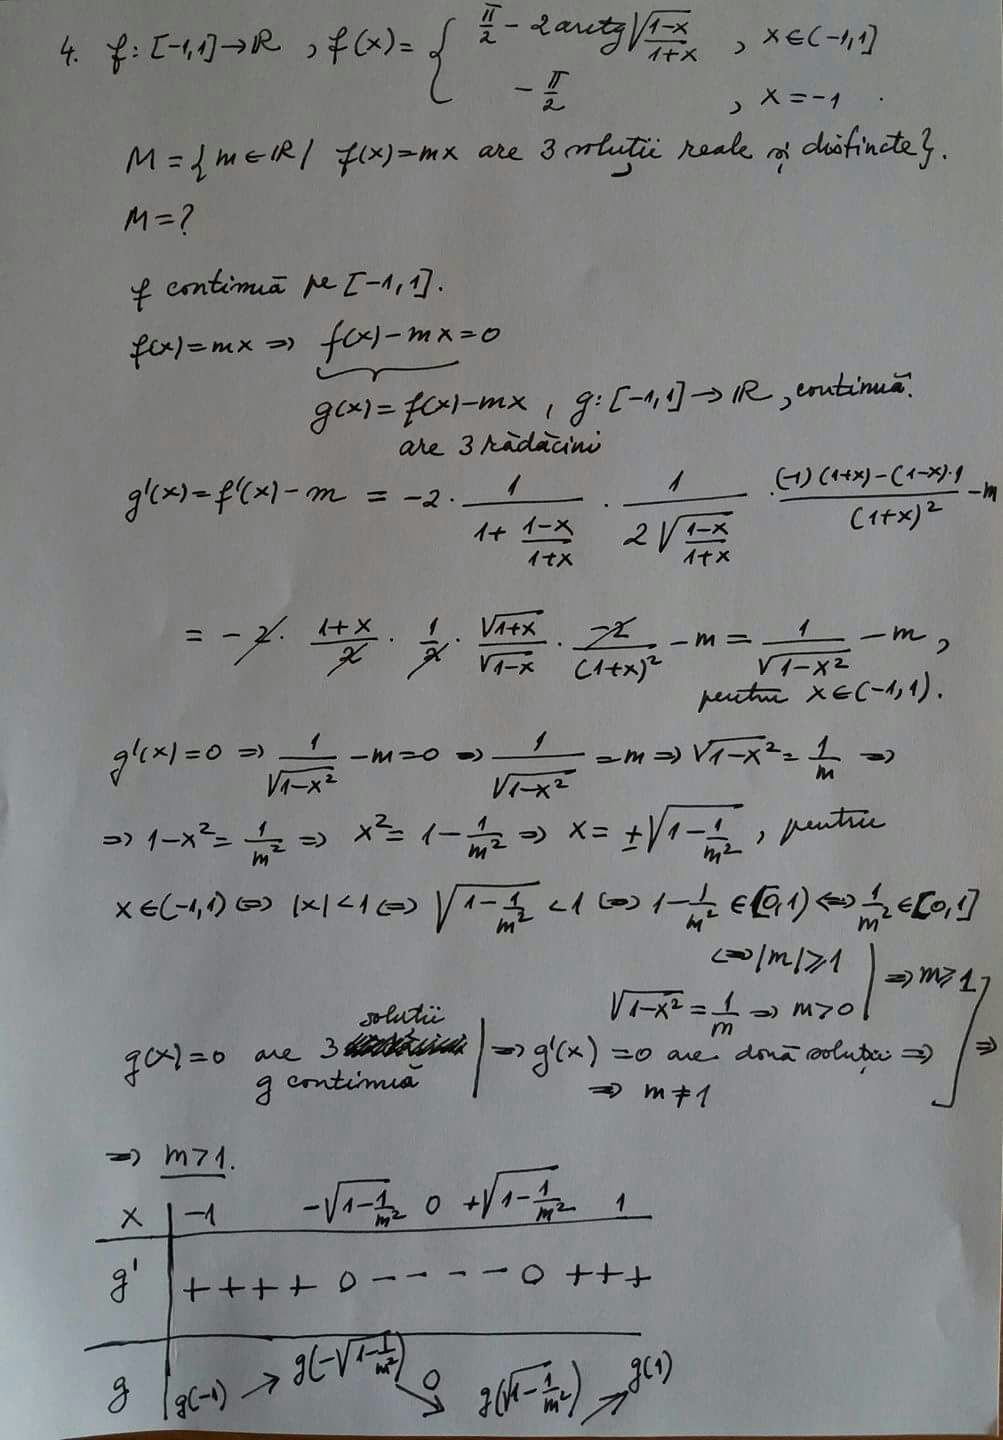 4. f: [-1,1] → ℝ , f(x) = { π/2 - 2 arctg √((1-x)/(1+x)) , x∈(-1,1]
-π/2 , x=-1 .
M = {m∈ℝ / f(x)=mx are 3 soluții reale și distincte}.
M=?
f continuă pe [-1,1].
f(x)=mx ⇒ f(x)-mx=0
g(x)=f(x)-mx , g:[-1,1]→ℝ, continuă.
are 3 rădăcini
g'(x)=f'(x)-m = -2 · 1/(1+(1-x)/(1+x)) · 1/(2√((1-x)/(1+x))) · ((-1)(1+x)-(1-x)·1)/(1+x)² - m
= -2 · (1+x)/2 · 1/2 · √(1+x)/√(1-x) · (-2)/(1+x)² - m = 1/√(1-x²) - m ,
pentru x∈(-1,1).
g'(x)=0 ⇒ 1/√(1-x²) - m=0 ⇒ 1/√(1-x²) = m ⇒ √(1-x²) = 1/m ⇒
⇒ 1-x² = 1/m² ⇒ x² = 1-1/m² ⇒ x = ±√(1-1/m²) , pentru
x∈(-1,1) ⇔ |x|<1 ⇔ √(1-1/m²) <1 ⇔ 1-1/m² ∈[0,1) ⇔ 1/m² ∈[0,1]
⇔ |m|≥1 | ⇒ m≥1
√(1-x²) = 1/m ⇒ m>0
soluții
g(x)=0 are 3 | ⇒ g'(x)=0 are două soluții ⇒ ] ⇒
g continuă ⇒ m≠1
⇒ m>1.
x | -1 -√(1-1/m²) 0 +√(1-1/m²) 1
g' | + + + + 0 - - - - 0 + + +
g | g(-1) ↗ g(-√(1-1/m²)) ↘ 0 g(√(1-1/m²)) ↗ g(1)